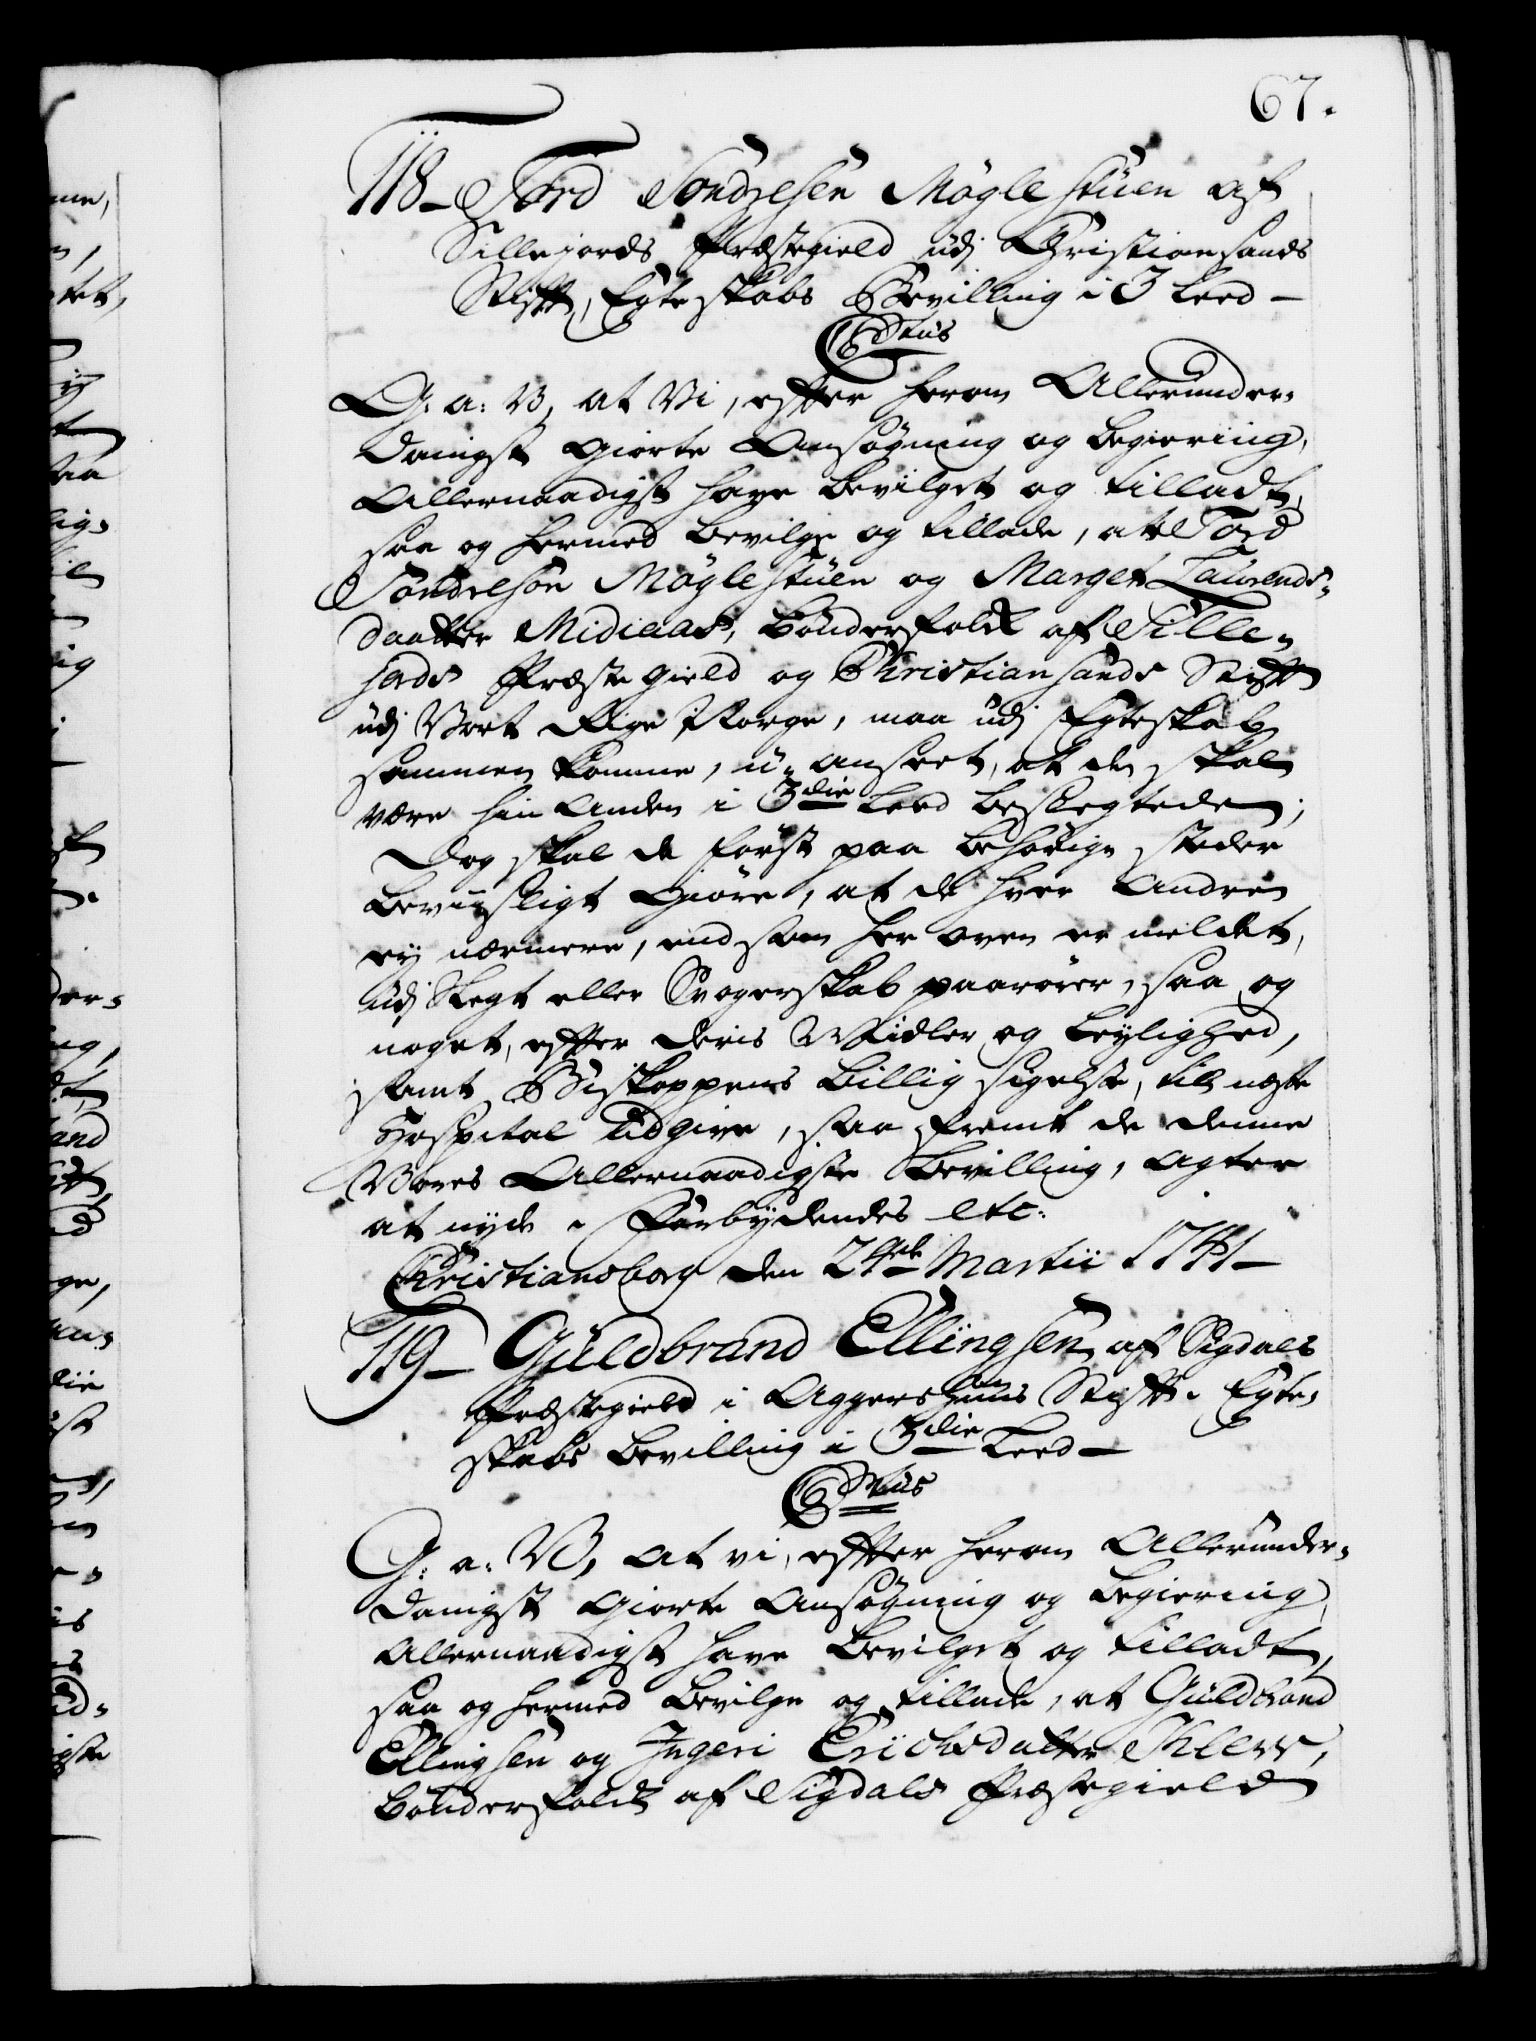 67.
118_ Tord Sondresen Mögle stüen af
Sillejords Præstegield udj Christiansands
Stift, Egteskabs Bevilling i 3 Leed _
C 6tus
G: a: V, at Vi, efter herom Allerunder-
danigst giorte Ansøgning og begiering,
Allernaadigst have bevilget og tilladt,
saa og hermed bevilge og tillade, at Tord
Söndresön Möglestüen og Marget Laurends-
daatter Midiaas, bönderfolk af Sille-
jords Præstegield og Christiansands Stift
udj Vort Rige Norge, maa udj Egteskab
sammen komme, u-anseet, at de skal
være hin anden i 3die Leed beslegtede;
Dog skal de först paa behörige steder
beviisligt giöre, at de hver andre
ey nærmere, end som her oven er meldet,
udj Slegt eller Svogerskab paarörer, saa og
noget, efter deris Midler og Leylighed,
samt Biskoppens billig sigelse, til næste
Hospital udgive, saa fremt de denne
Vores Allernaadigste bevilling, agter
at nyde. Forbydendes etc:
Christiansborg den 24de Martii 1741_
119_ Güldbrand Ellingsen af Sigdals
Præstegield i Aggershuus Stift. Egte-
skabs bevilling i 3die Leed _
C 6tus
G: a: V, at vi, efter herom Allerunder-
danigst giorte ansögning og begiering,
Allernaadigst have bevilget og tilladt,
saa og hermed bevilge og tillade, at Güldbrand
Ellingsen og Ingeri Erichsdatter
bönderfolk af Sigdals Præstegield